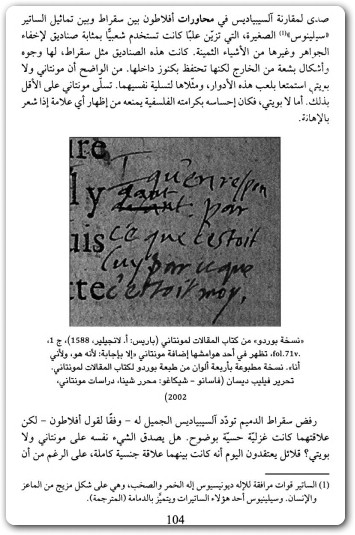 صدى لمقارنة ألسيبياديس في محاورات أفلاطون بين سقراط وبين تماثيل الساتير
«سيلينوس»(1) الصغيرة، التي تزيّن علبًا كانت تستخدم شعبيًّا بمثابة صناديق لإخفاء
الجواهر وغيرها من الأشياء الثمينة. كانت هذه الصناديق مثل سقراط، لها وجوه
وأشكال بشعة من الخارج لكنها تحتفظ بكنوز داخلها. من الواضح أن مونتاني ولا
بويتي استمتعا بلعب هذه الأدوار، ومثّلاها لتسلية نفسيهما. تسلّى مونتاني على الأقل
بذلك. أما لا بويتي، فكان إحساسه بكرامته الفلسفية يمنعه من إظهار أي علامة إذا شعر
بالإهانة.
ire
ly
uis
tte
qu'en respon
dant par
ce que c'estoit
luy parce que
c'estoit moy.
«نسخة بوردو» من كتاب المقالات لمونتاني (باريس: أ. لانجيلير، 1588)، ج 1،
fol.71v.، تظهر في أحد هوامشها إضافة مونتاني «إلا بإجابة: لأنه هو، ولأني
أنا». نسخة مطبوعة بأربعة ألوان من طبعة بوردو لكتاب المقالات لمونتاني.
تحرير فيليب ديسان (فاسانو – شيكاغو: محرر شينا، دراسات مونتاني،
2002)
رفض سقراط الدميم تودّد ألسيبياديس الجميل له – وفقًا لقول أفلاطون – لكن
علاقتهما كانت غزليّة حسيّة بوضوح. هل يصدق الشيء نفسه على مونتاني ولا
بويتي؟ قلائل يعتقدون اليوم أنه كانت بينهما علاقة جنسية كاملة، على الرغم من أن
(1) الساتير قوات مرافقة للإله ديونيسيوس إله الخمر والصخب، وهي على شكل مزيج من الماعز
والإنسان. وسيلينيوس أحد هؤلاء الساتيرات ويتميَّز بالدمامة (المترجمة).
104